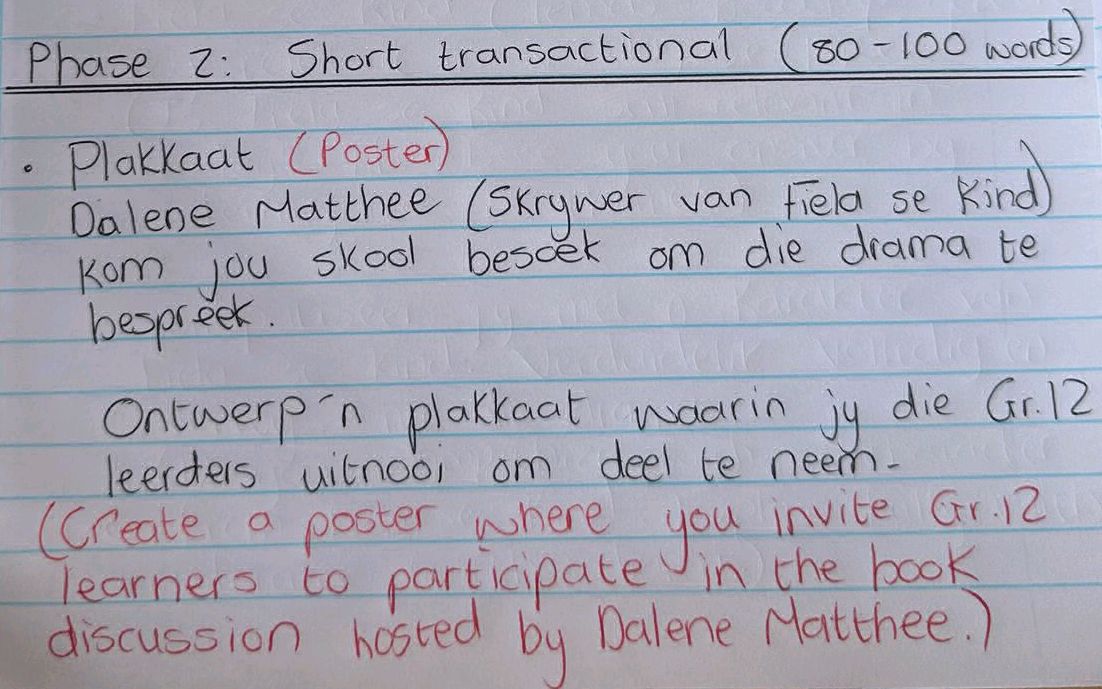 Phase 2: Short transactional (80-100 words)
• Plakkaat (Poster)
Dalene Matthee (Skrywer van Fiela se Kind)
kom jou skool besoek om die drama te
bespreek.
Ontwerp 'n plakkaat waarin jy die Gr.12
leerders uitnooi om deel te neem-
(Create a poster where you invite Gr.12
learners to participate in the book
discussion hosted by Dalene Matthee.)